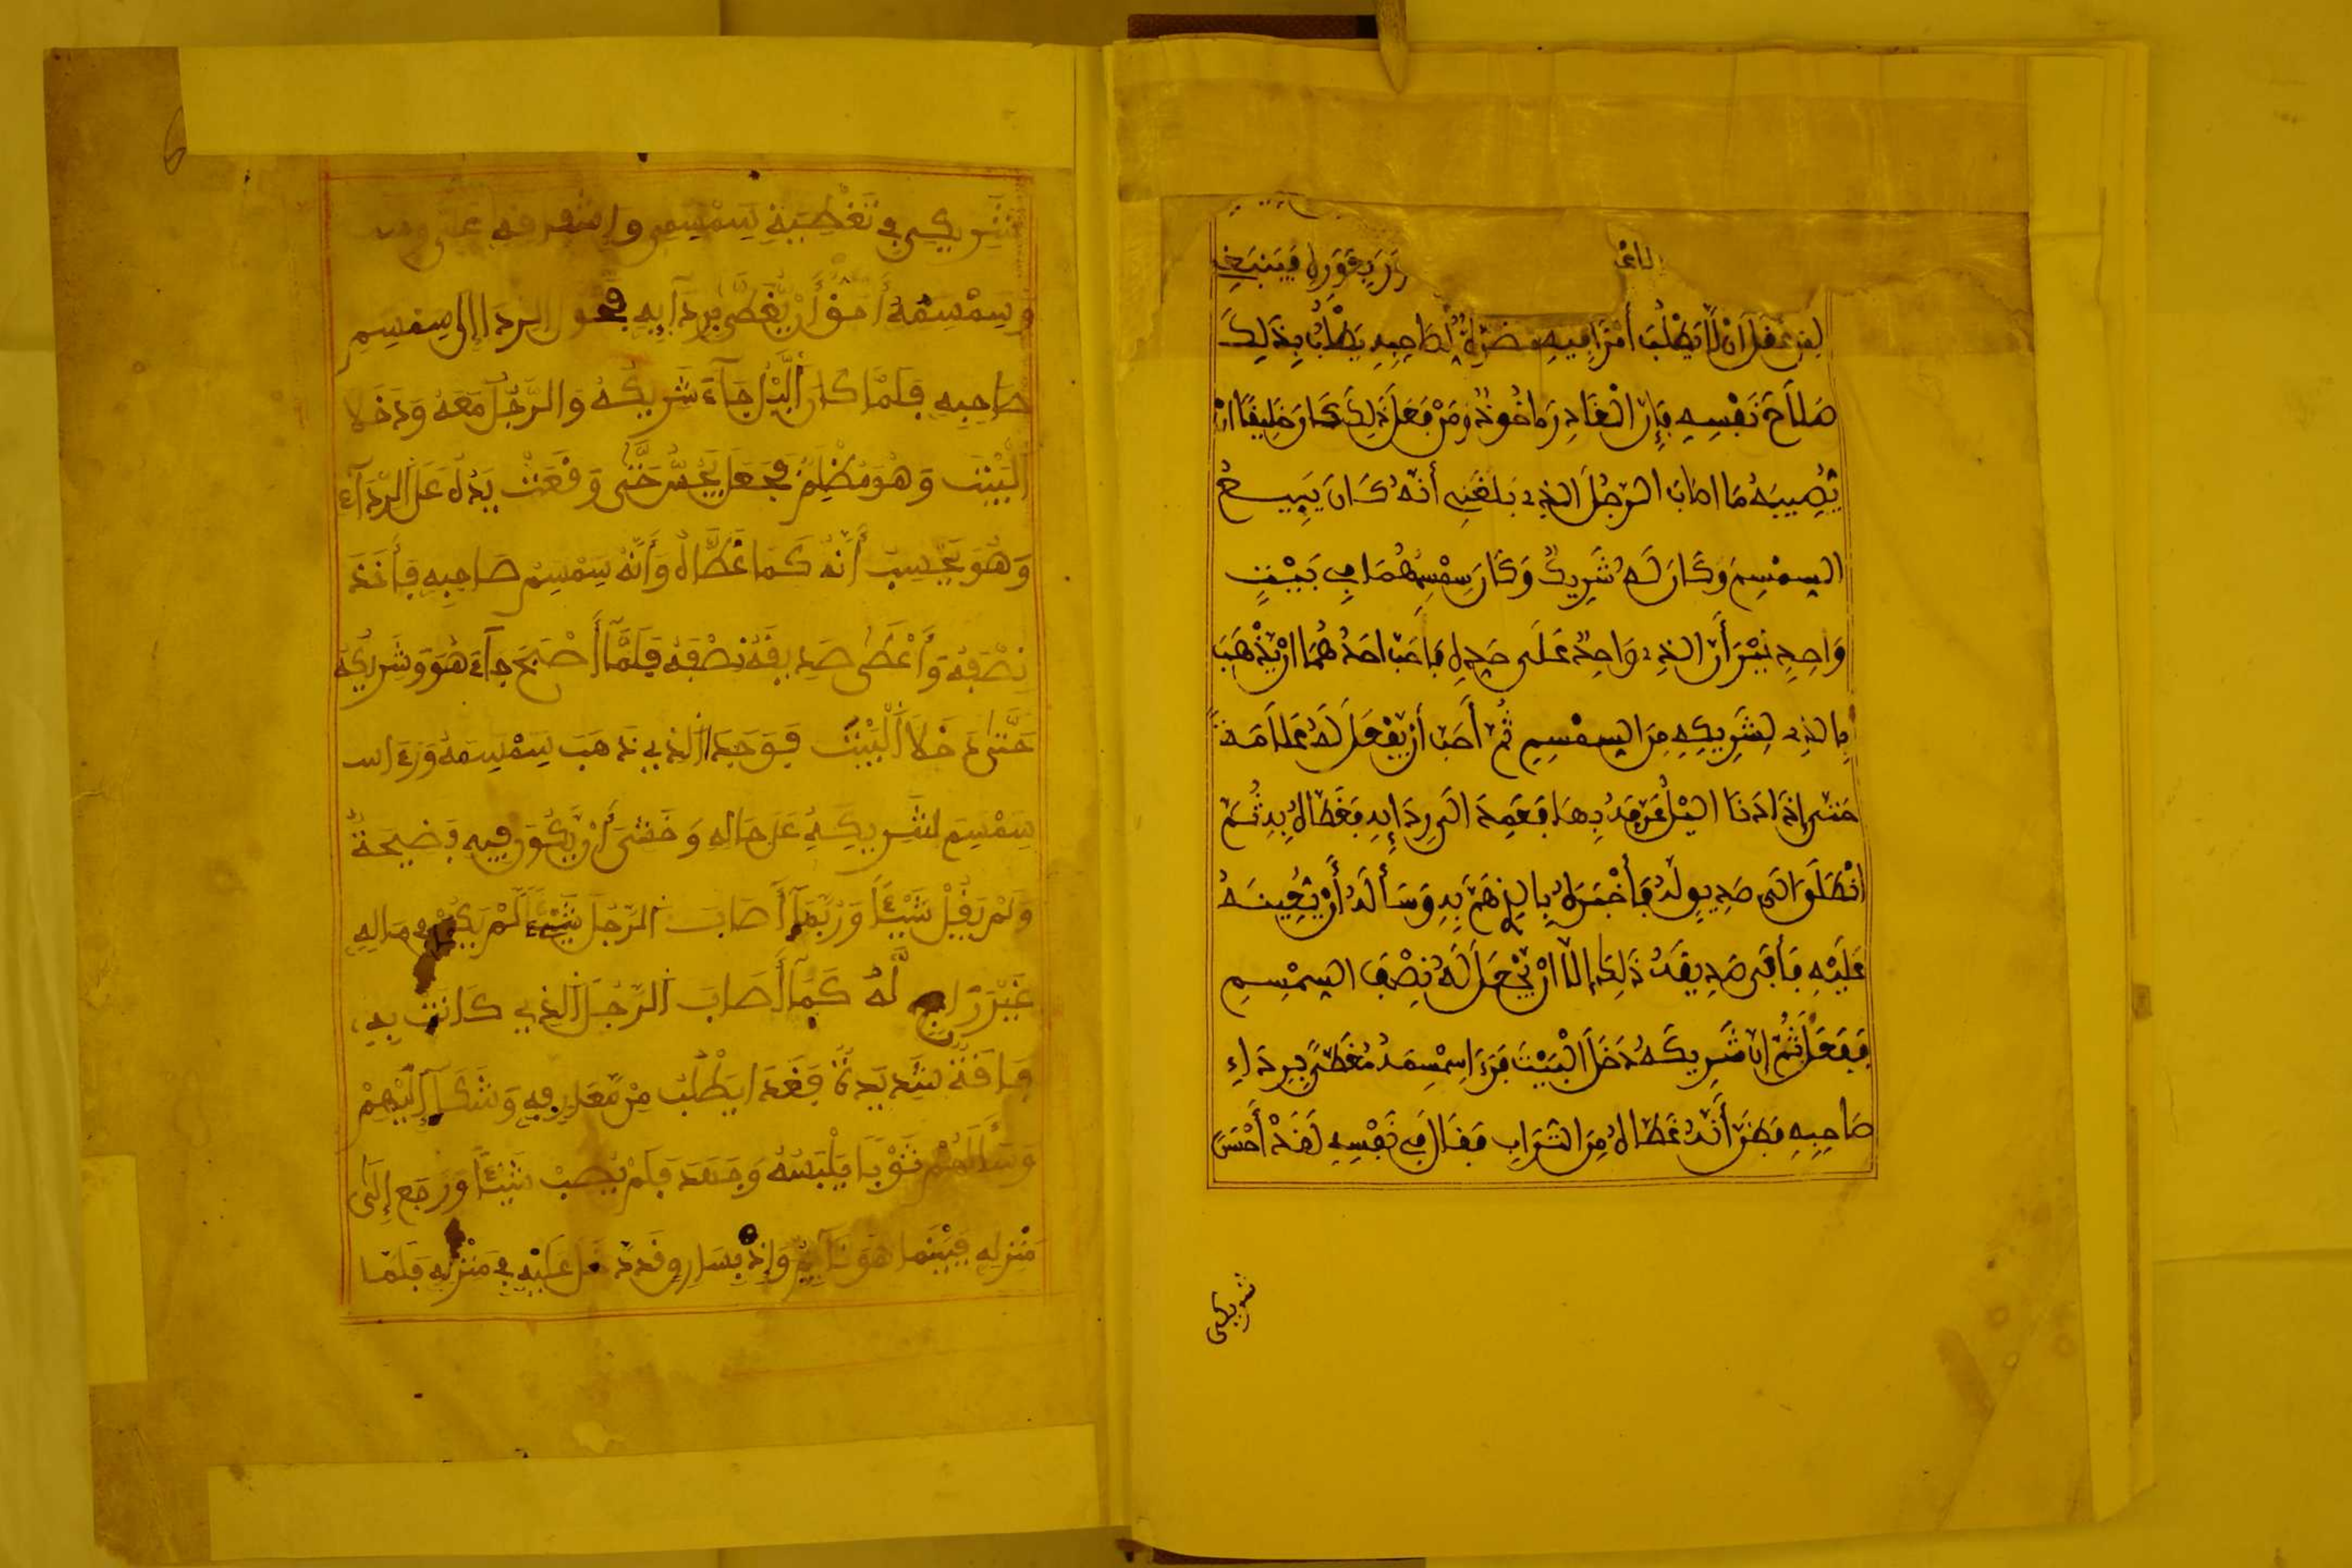 فينبغي
لمن عقل ان لا يطلب أمرا فيه مضرة لصاحبه يطلب بذلك
صلاح نفسه فإن الغادر ماخوذ ومن فعل ذلك كان خليفا ان
يصيبه ما اصاب الرجل الذي بلغني أنه كان يبيع
السمسم وكان له شريك وكان سمسمهما في بيت
واحد غير أن الذي لواحد على حدة فاحب احدهما ان يذهب
بالذي لشريكه من السمسم ثم أحب أن يجعل له علامة
حتى إذا دنا اليل عرفه بها فعمد الى ردايه فغطاه به ثم
انطلق الى صديق له فأخبره بالذي هم به وسأله أن يعينه
عليه فأبى صديقه ذلك إلا ان يجعل له نصف السمسم
ففعل ثم إن شريكه دخل البيت فرءا سمسمه مغطى برداء
صاحبه فظن أنه غطاه من التراب فقال في نفسه لقد أحسن
شريكي
شريكي في تغطية سمسمي وإشفاقه علي
وسمسمه أحق أن يغطى بردآيه فحول الردا إلى سمسم
صاحبه فلما كان اليل جآء شريكه والرجل معه ودخلا
البيت وهو مظلم فجعل يجس حتى وقعت يده على الردآء
وهو يحسب أنه كما غطاه وأنه سمسم صاحبه فأخذ
نصفه وأعطى صديقه نصفه فلما أصبح جآء هو وشريكه
حتى دخلا البيت فوجد الذي ذهب سمسمه ورءا
سمسم شريكه على حاله وخشى أن يكون فيه فضيحة
ولم يقل شيئا وربما أصاب الرجل شيئا لم يكن في ماله
غير راج له كما أصاب الرجل الذي كانت به
فاقة شديدة فغدا يطلب من معارفه وشكا إليهم
وسألهم ثوبا يلبسه وجهد فلم يصب شيئا ورجع إلى
منزله فبينما هو نآيم وإذ بسارق قد دخل عليه في منزله فلما